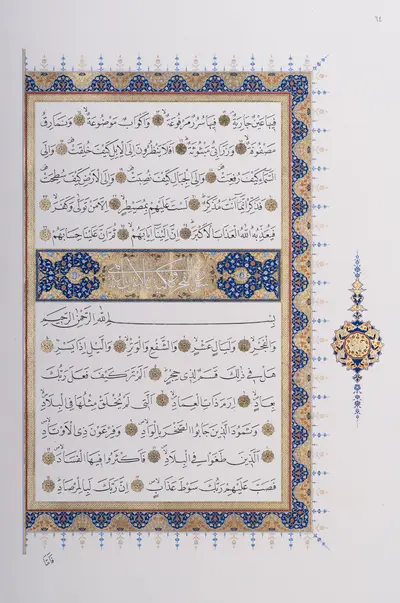 ٦٤
فِيهَا عَيْنٌ جَارِيَةٌ ۝ فِيهَا سُرُرٌ مَرْفُوعَةٌ ۝ وَأَكْوَابٌ مَوْضُوعَةٌ ۝ وَنَمَارِقُ
مَصْفُوفَةٌ ۝ وَزَرَابِيُّ مَبْثُوثَةٌ ۝ أَفَلَا يَنْظُرُونَ إِلَى الْإِبِلِ كَيْفَ خُلِقَتْ ۝ وَإِلَى
السَّمَاءِ كَيْفَ رُفِعَتْ ۝ وَإِلَى الْجِبَالِ كَيْفَ نُصِبَتْ ۝ وَإِلَى الْأَرْضِ كَيْفَ سُطِحَتْ
۝ فَذَكِّرْ إِنَّمَا أَنْتَ مُذَكِّرٌ ۝ لَسْتَ عَلَيْهِمْ بِمُصَيْطِرٍ ۝ إِلَّا مَنْ تَوَلَّى وَكَفَرَ ۝
فَيُعَذِّبُهُ اللَّهُ الْعَذَابَ الْأَكْبَرَ ۝ إِنَّ إِلَيْنَا إِيَابَهُمْ ۝ ثُمَّ إِنَّ عَلَيْنَا حِسَابَهُمْ ۝
بِسْمِ اللَّهِ الرَّحْمَنِ الرَّحِيمِ
وَالْفَجْرِ ۝ وَلَيَالٍ عَشْرٍ ۝ وَالشَّفْعِ وَالْوَتْرِ ۝ وَاللَّيْلِ إِذَا يَسْرِ ۝
هَلْ فِي ذَلِكَ قَسَمٌ لِذِي حِجْرٍ ۝ أَلَمْ تَرَ كَيْفَ فَعَلَ رَبُّكَ
بِعَادٍ ۝ إِرَمَ ذَاتِ الْعِمَادِ ۝ الَّتِي لَمْ يُخْلَقْ مِثْلُهَا فِي الْبِلَادِ ۝
وَثَمُودَ الَّذِينَ جَابُوا الصَّخْرَ بِالْوَادِ ۝ وَفِرْعَوْنَ ذِي الْأَوْتَادِ
۝ الَّذِينَ طَغَوْا فِي الْبِلَادِ ۝ فَأَكْثَرُوا فِيهَا الْفَسَادَ ۝
فَصَبَّ عَلَيْهِمْ رَبُّكَ سَوْطَ عَذَابٍ ۝ إِنَّ رَبَّكَ لَبِالْمِرْصَادِ ۝
فَأَمَّا